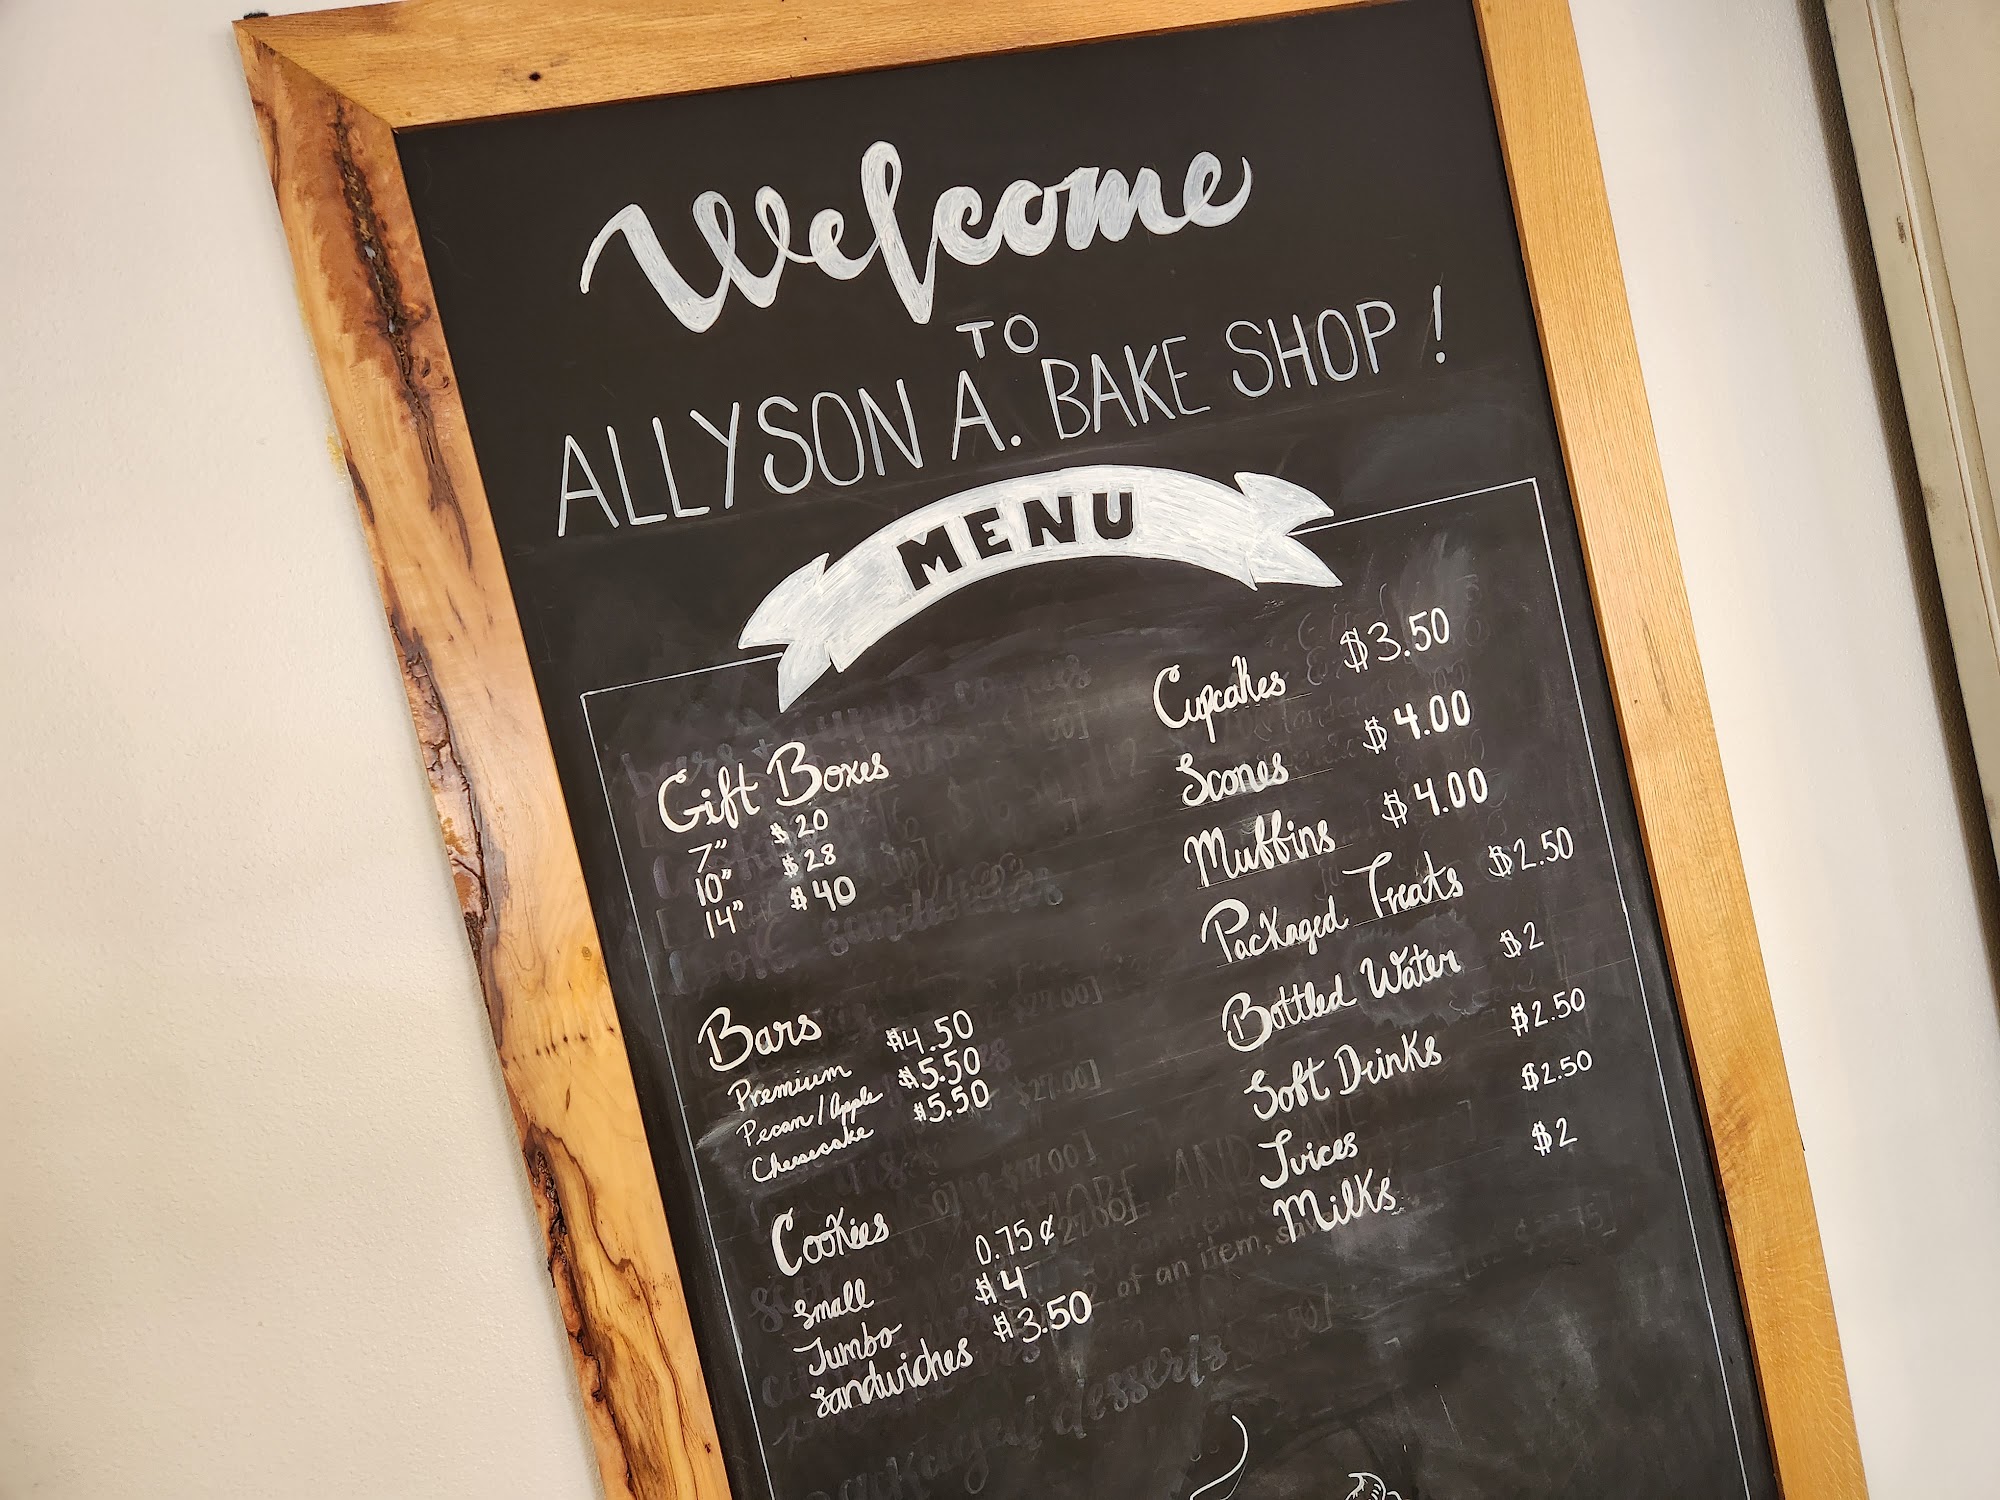 Welcome
TO
ALLYSON A. BAKE SHOP !
MENU
Gift Boxes
7" $20
10" $28
14" $40
Bars
Premium $4.50
Pecan / Apple $5.50
Cheesecake $5.50
Cookies
Small 0.75¢
Jumbo $4
Sandwiches $3.50
Cupcakes $3.50
Scones $4.00
Muffins $4.00
Packaged Treats $2.50
Bottled Water $2
Soft Drinks $2.50
Juices $2.50
Milks $2
of an item,
packaged desserts